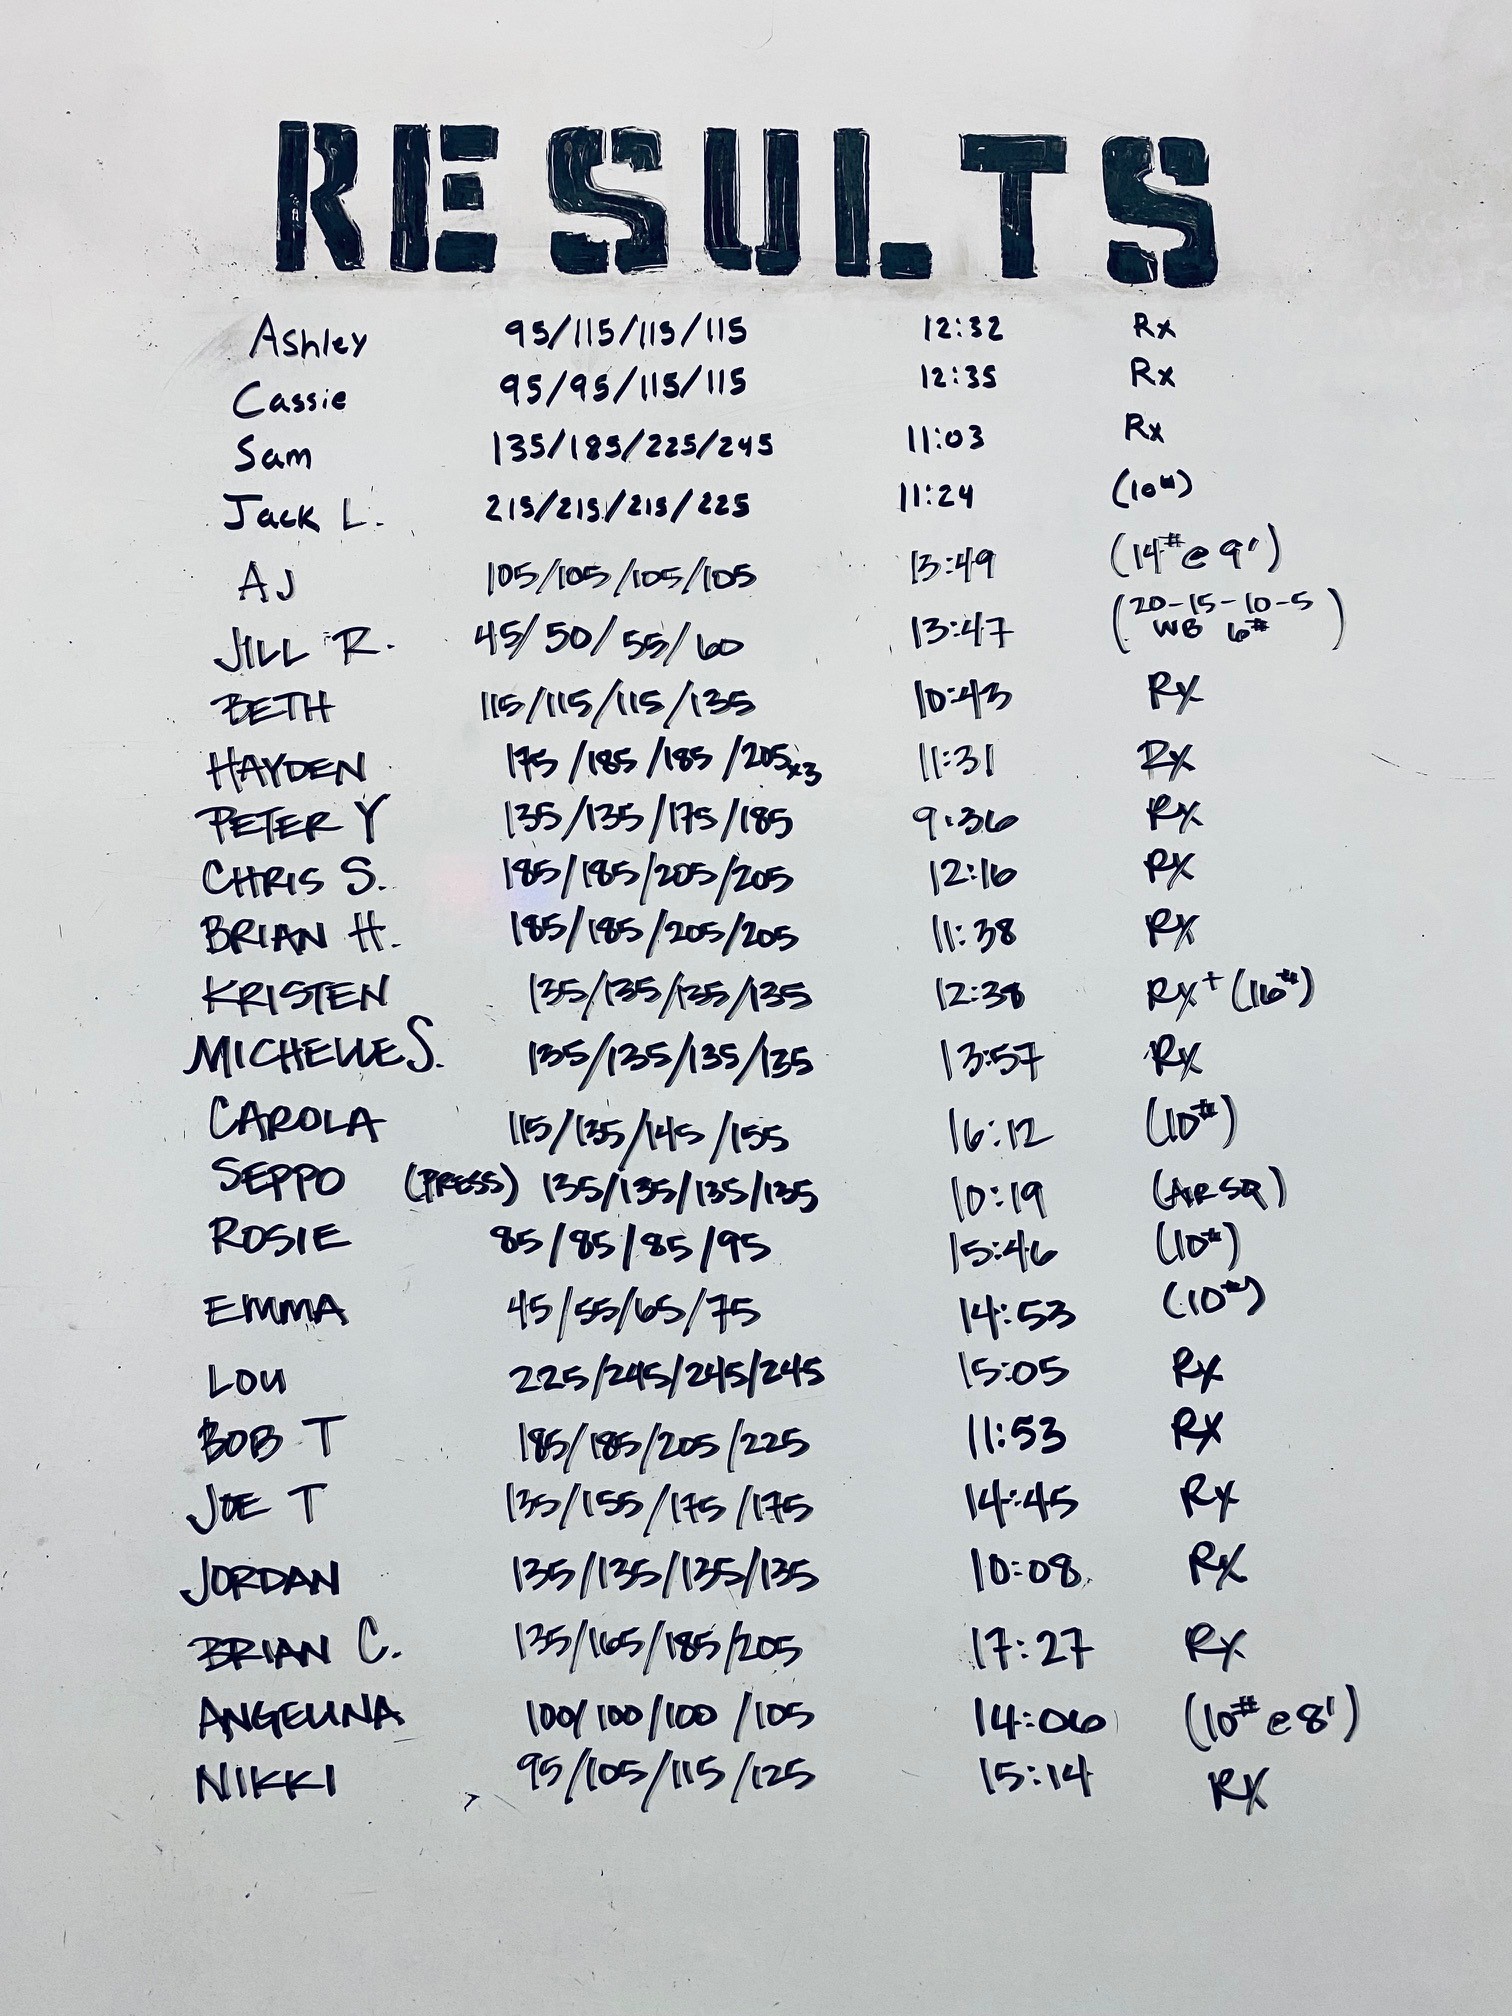 RESULTS
Ashley 95/115/115/115 12:32 Rx
Cassie 95/95/115/115 12:35 Rx
Sam 135/185/225/245 11:03 Rx
Jack L. 215/215/215/225 11:24 (10#)
AJ 105/105/105/105 13:49 (14# @ 9')
JILL R. 45/50/55/60 13:47 (20-15-10-5 WB 6#)
BETH 115/115/115/135 10:43 Rx
HAYDEN 175/185/185/205x3 11:31 Rx
PETER Y 135/135/175/185 9:36 Rx
CHRIS S. 185/185/205/205 12:16 Rx
BRIAN H. 185/185/205/205 11:38 Rx
KRISTEN 135/135/135/135 12:38 Rx+ (16#)
MICHELLE S. 135/135/135/135 13:57 Rx
CAROLA 115/135/145/155 16:12 (10#)
SEPPO (PRESS) 135/135/135/135 10:19 (AIR SQ)
ROSIE 85/85/85/95 15:46 (10#)
EMMA 45/55/65/75 14:53 (10#)
LOU 225/245/245/245 15:05 Rx
BOB T 185/185/205/225 11:53 Rx
JOE T 135/155/175/175 14:45 Rx
JORDAN 135/135/135/135 10:08 Rx
BRIAN C. 135/165/185/205 17:27 Rx
ANGELINA 100/100/100/105 14:06 (10# @ 8')
NIKKI 95/105/115/125 15:14 Rx